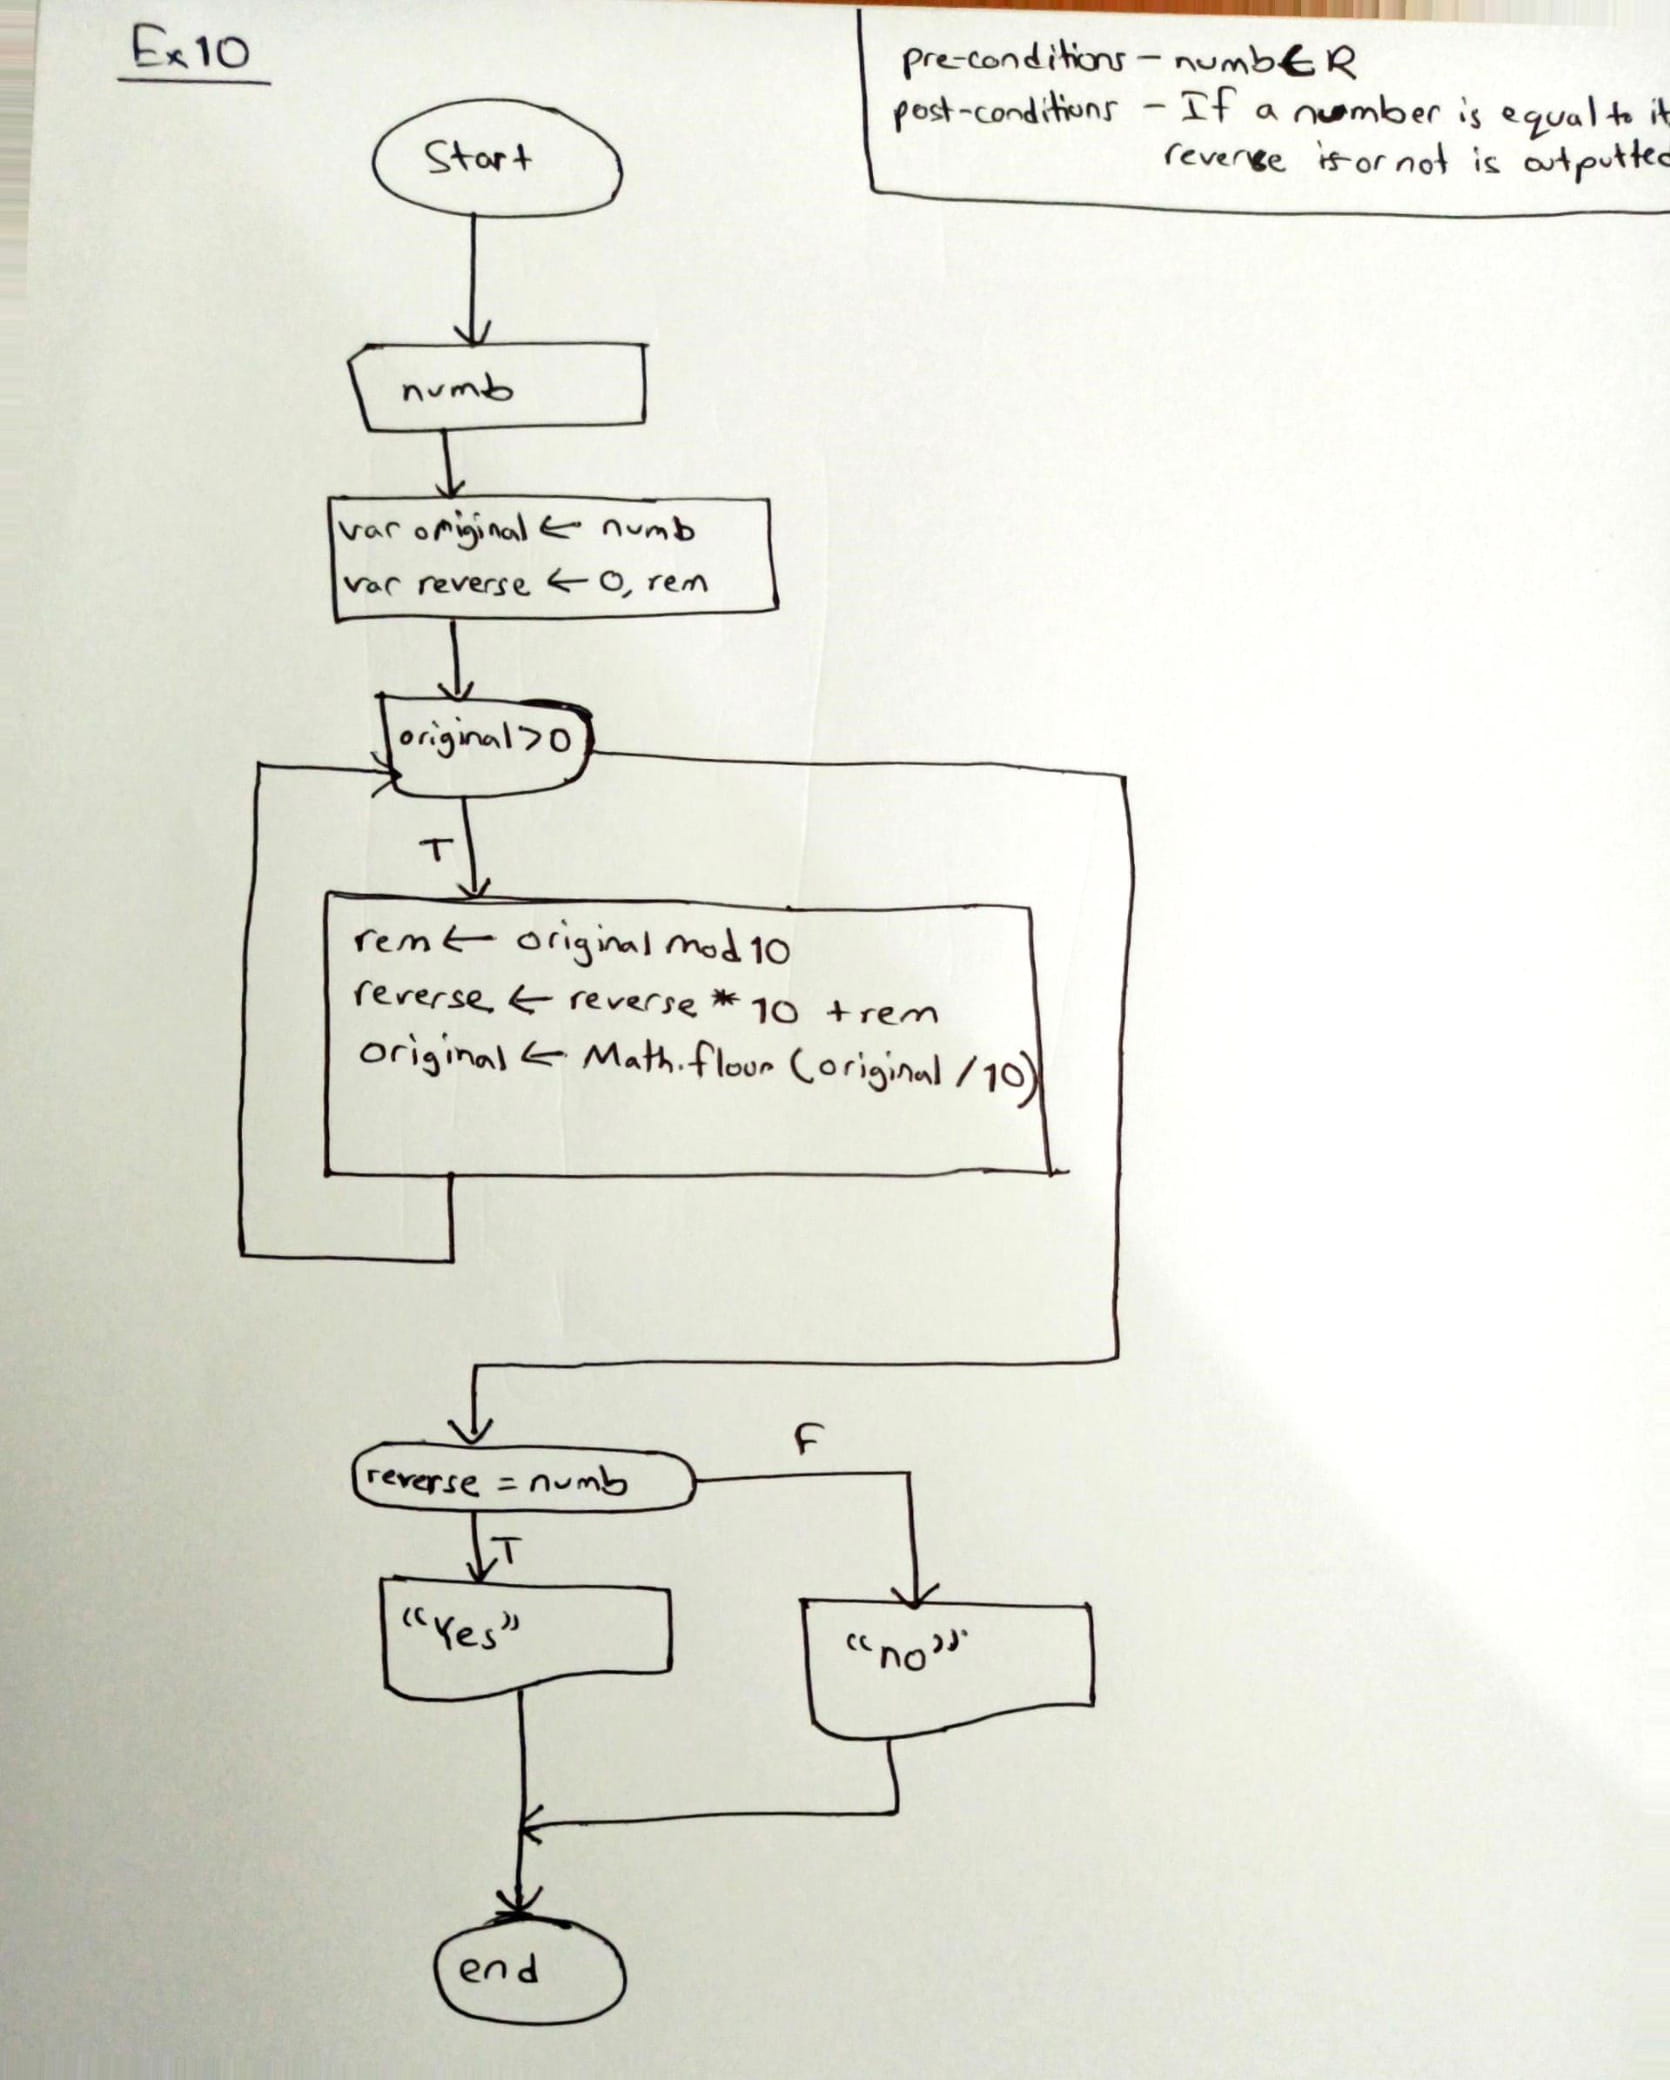 Ex10
pre-conditions - numb∈R
post-conditions - If a number is equal to it
reverse is or not is outputted
Start
numb
var original ← numb
var reverse ← 0, rem
original>0
T
rem ← original mod 10
reverse ← reverse * 10 + rem
original ← Math.floor (original /10)
reverse = numb
F
T
"Yes"
"no"
end